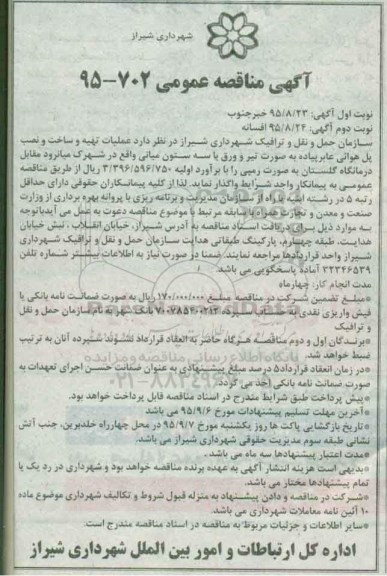 شهرداری شیراز
آگهی مناقصه عمومی ۷۰۲-۹۵
نوبت اول آگهی: ۹۵/۸/۲۳ خبرجنوب
نوبت دوم آگهی: ۹۵/۸/۲۴ افسانه
سازمان حمل و نقل و ترافیک شهرداری شیراز در نظر دارد عملیات تهیه و ساخت و نصب
پل هوائی عابرپیاده به صورت تیر و ورق با سه ستون میانی واقع در شهرک میانرود مقابل
درمانگاه گلستان به صورت رمپی را با برآورد اولیه ۳/۳۹۶/۵۹۶/۷۵۰ ریال از طریق مناقصه
عمومی به پیمانکار واجد شرایط واگذار نماید. لذا از کلیه پیمانکاران حقوقی دارای حداقل
رتبه ۵ در رشته راه از سازمان مدیریت و برنامه ریزی یا پروانه بهره برداری از وزارت
صنعت و معدن و تجارت همراه با سابقه مرتبط با موضوع مناقصه دعوت به عمل می آید باتوجه
به موارد ذیل برای دریافت اسناد مناقصه به آدرس شیراز، خیابان انقلاب، نبش خیابان
هدایت، طبقه چهارم، پارکینگ طبقاتی هدایت سازمان حمل و نقل و ترافیک شهرداری
شیراز واحد قراردادها مراجعه نمایند. ضمنا در صورت نیاز به اطلاعات بیشتر شماره تلفن
۳۲۳۴۶۵۳۹ آماده پاسخگویی می باشد.
مدت انجام کار: چهارماه
*مبلغ تضمین شرکت در مناقصه مبلغ ۱۷۰/۰۰۰/۰۰۰ ریال به صورت ضمانت نامه بانکی یا
فیش واریزی نقدی به حساب ۷۰۰۷۸۵۴۰۰۲۱۳ بانک شهر به نام سازمان حمل و نقل
و ترافیک
*برندگان اول و دوم مناقصه هرگاه حاضر به انعقاد قرارداد نشوند سپرده آنان به ترتیب
ضبط خواهد شد.
*در زمان انعقاد قرارداد ۵ درصد مبلغ پیشنهادی به عنوان ضمانت حسن اجرای تعهدات به
صورت ضمانت نامه بانکی اخذ می گردد.
*پیش پرداخت طبق شرایط مندرج در اسناد مناقصه قابل پرداخت خواهد بود.
*آخرین مهلت تسلیم پیشنهادات مورخ ۹۵/۹/۶ می باشد
*تاریخ بازگشایی پاکت ها روز یکشنبه مورخ ۹۵/۹/۷ در محل چهارراه خلدبرین، جنب آتش
نشانی طبقه سوم مدیریت حقوقی شهرداری شیراز می باشد.
*مدت اعتبار پیشنهادها سه ماه می باشد.
*بدیهی است هزینه انتشار آگهی به عهده برنده مناقصه خواهد بود و شهرداری در رد یک یا
تمام پیشنهادها مختار می باشد.
*شرکت در مناقصه و دادن پیشنهاد به منزله قبول شروط و تکالیف شهرداری موضوع ماده
۱۰ آئین نامه معاملات شهرداری می باشد.
*سایر اطلاعات و جزئیات مربوط به مناقصه در اسناد مناقصه مندرج است.
اداره کل ارتباطات و امور بین الملل شهرداری شیراز